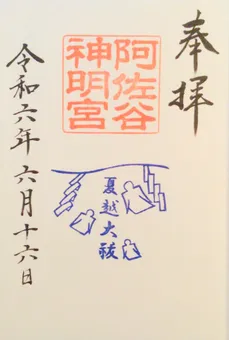 奉拝
阿佐谷
神明宮
夏越大祓
令和六年六月十六日